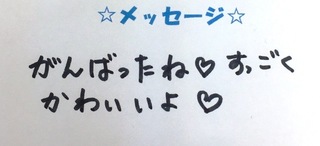 ☆メッセージ☆
がんばったね♡ すっごく
かわいいよ♡